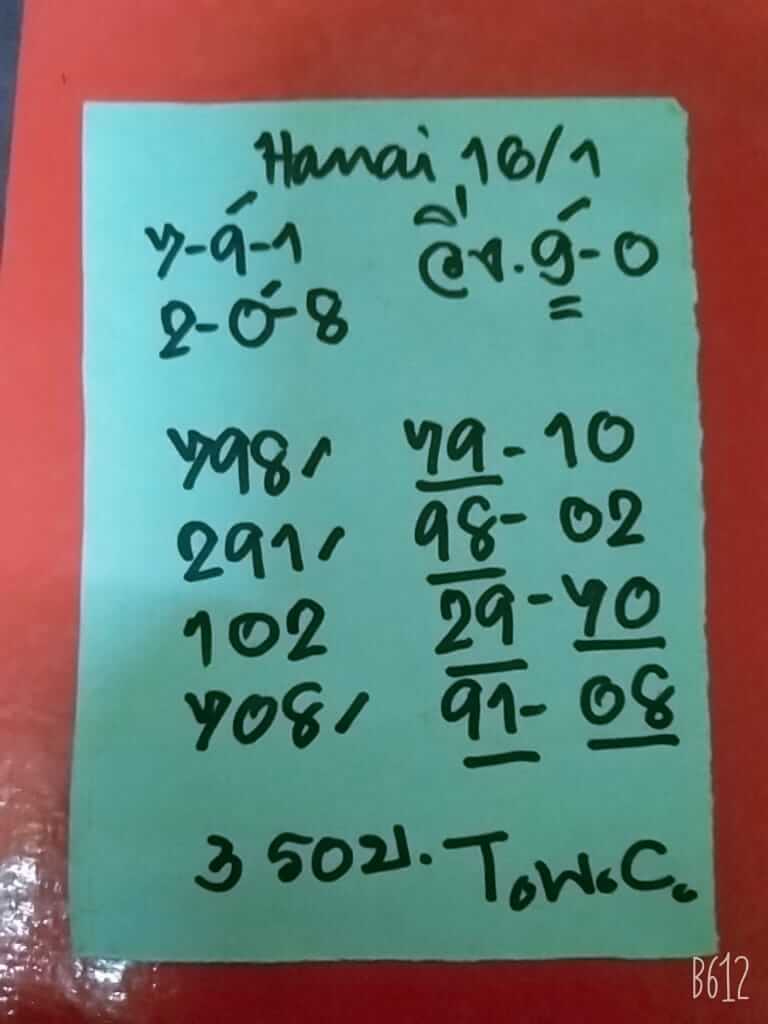 Hanai 16/1
7-9-1 วิ่ง.9-0
2-0-8
798/ 79-10
291/ 98-02
102 29-70
708/ 91-08
3 50 T.W.C.
B612